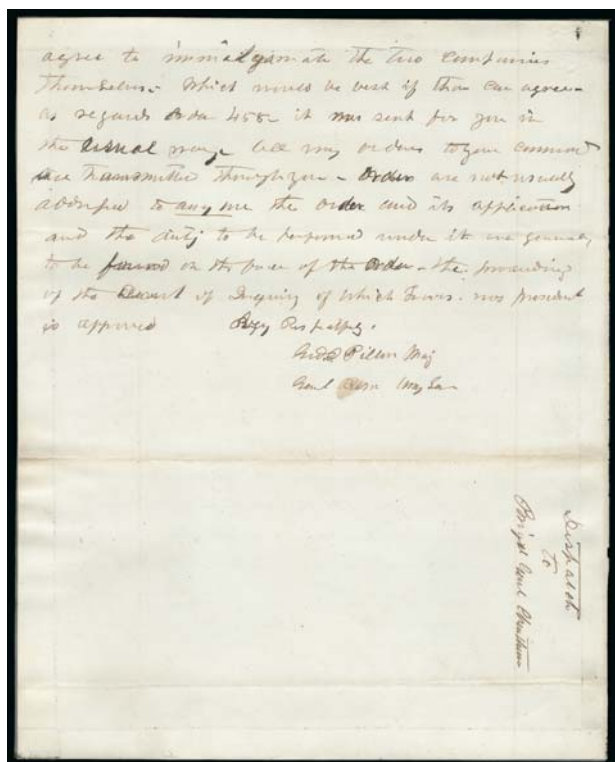 agree to immalgamate the two Companies
themselves. Which would be best if they can agree
as regards Order 458 it was sent for you in
the Usual way. All my orders to your command
are transmitted through you. Orders are not usually
addressed to any one the order and its application
and the duty to be performed under it are generally
to be found on the face of the Order. the proceedings
of the Court of Inquiry of which was president
is approved Respectfully.
Gid J Pillow Maj
Genl
Dispatch
to
Brigd Genl Cheatham